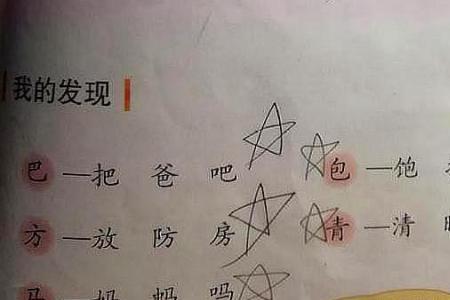 我的发现
巴 — 把 爸 吧 包 — 饱
方 — 放 防 房 青 — 清
马 — 妈 蚂 吗